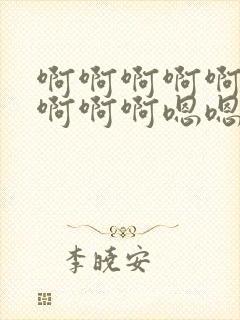 啊啊啊啊啊
啊啊啊嗯嗯
李晓安